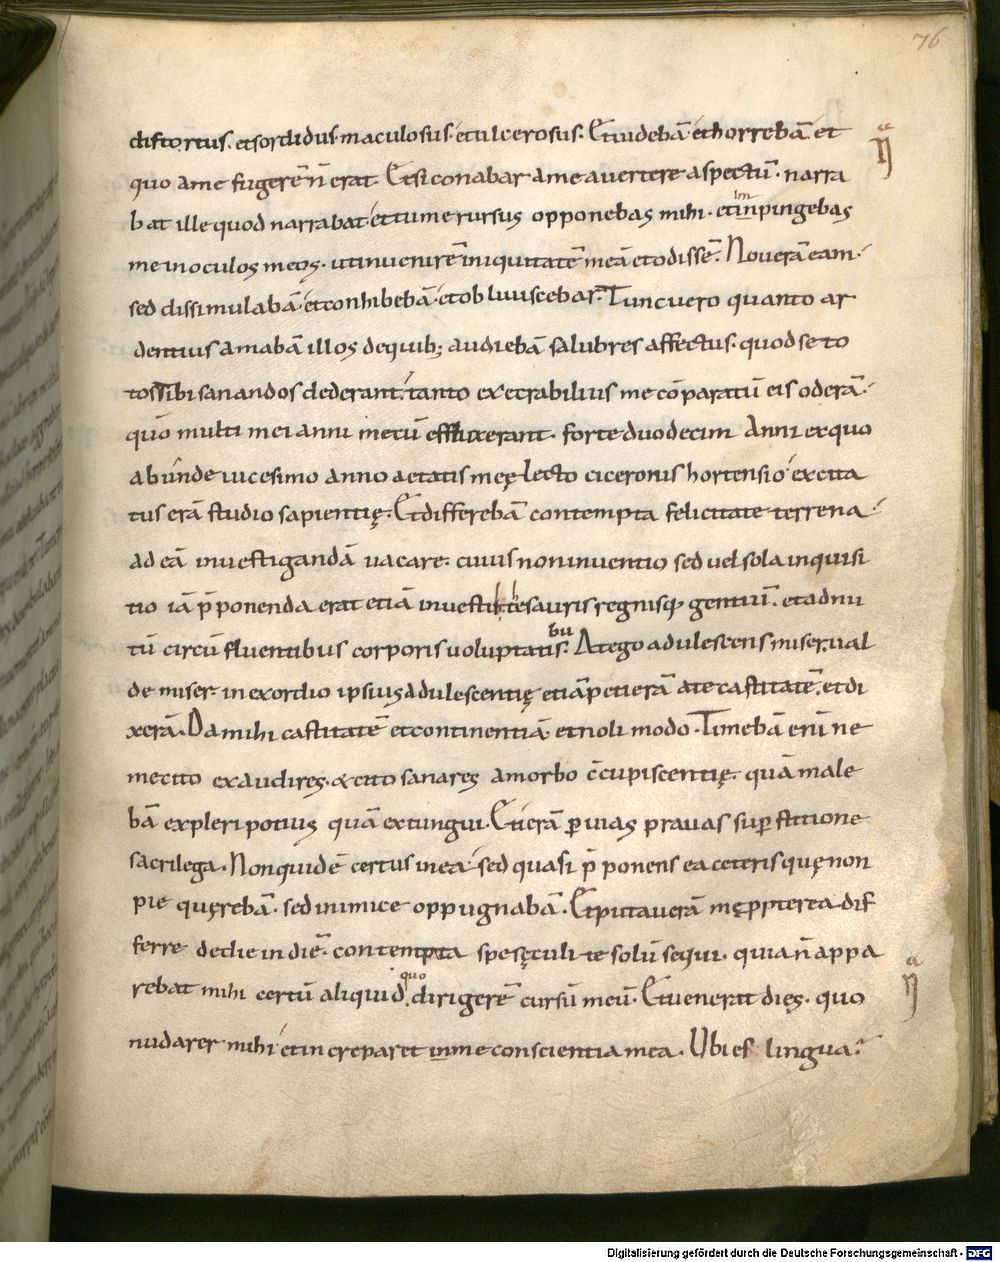 76
distortus. et sordidus. maculosus. et ulcerosus. Et videbā et horrebā. et
quo a me fugerē n̄ erat. Et si conabar a me avertere aspectū. narra
bat ille quod narrabat. et tu me rursus opponebas mihi. et inpingebas
im
me in oculos meos. ut invenirē iniquitatē meā et odissē. Noverā eam.
sed dissimulabā. et conhibebā. et obliviscebar. Tunc vero quanto ar
dentius amabā illos de quib; audiebā salubres affectus. quod se to
tos tibi sanandos dederant. tanto execrabilius me cōparatū eis oderā.
quō multi mei anni mecū effluxerant. forte duodecim Anni ex quo
ab unde vicesimo anno aetatis meę lecto ciceronis hortensio excita
tus erā studio sapientię. Et differebā contempta felicitate terrena
ad eā investigandā vacare. cuius non inventio sed vel sola inquisi
tio iā p̄ponenda erat etiā inventis tesauris regnisq; gentiū. et ad nu
tū circūfluentibus corporis voluptatis. At ego adulescens miser. val
bu
de miser in exordio ipsius adulescentię etiā petierā a te castitatē. et di
xerā. Da mihi castitatē et continentiā. et noli modo. Timebā enī ne
me cito exaudires. & cito sanares a morbo c̄cupiscentię. quā male
bā expleri potius quā extingui. Et ierā p vias pravas sup stitione
sacrilega. Non quidē certus in ea. sed quasi p̄ponens ea ceteris quę non
pie quęrebā. sed inimice oppugnabā. Et putaverā mę ppterea dif
ferre de die in diē. contempta spe sęculi te solū sequi. quia n̄ appa
rebat mihi certū aliquid. dirigerē cursū meū. Et venerat dies. quo
quo
nudarer mihi et increparet in me conscientia mea. Ubi es lingua?
Digitalisierung gefördert durch die Deutsche Forschungsgemeinschaft - DFG